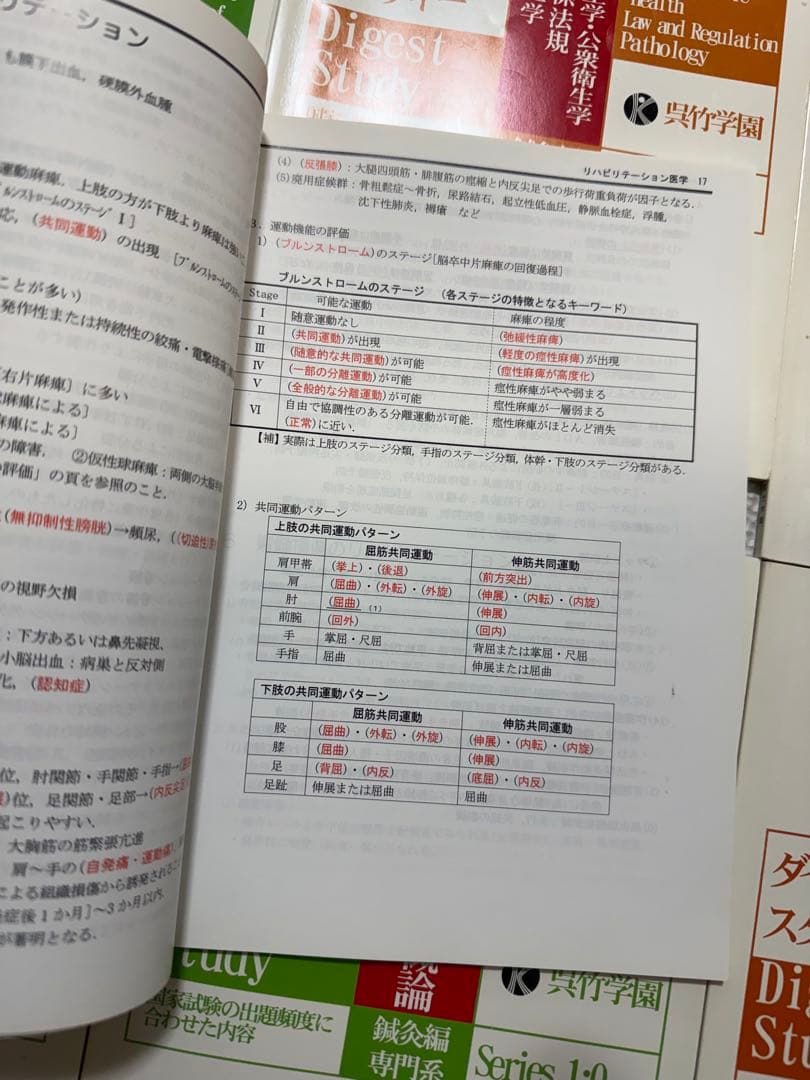 テーション
も膜下出血，硬膜外血腫
運動麻痺，上肢の方が下肢より麻痺は強い
ブルンストロームのステージⅠ]
(共同運動) の出現
ことが多い)
発作性または持続性の絞痛・電撃様痛
右片麻痺] に多い
麻痺による]
麻痺による]
の障害， ②仮性球麻痺：両側の大脳
評価」の頁を参照のこと．
(無抑制性膀胱)→頻尿，((切迫性
の視野欠損
：下方あるいは鼻先凝視、
小脳出血：病巣と反対側
化，(認知症)
位，肘関節・手関節・手指→
位，足関節・足部→(内反尖足
起こりやすい．
大胸筋の筋緊張亢進
肩～手の(自発痛・運動痛)
による組織損傷から誘発される
症後1か月]～3か月以内．
が著明となる．
リハビリテーション医学 17
(4) (反張膝)：大腿四頭筋・腓腹筋の痙縮と内反尖足での歩行荷重負荷が因子となる．
(5) 廃用症候群：骨粗鬆症～骨折，尿路結石，起立性低血圧，静脈血栓症，浮腫，
沈下性肺炎，褥瘡 など
3．運動機能の評価
1) (ブルンストローム)のステージ[脳卒中片麻痺の回復過程]
ブルンストロームのステージ (各ステージの特徴となるキーワード)
Stage 可能な運動 麻痺の程度
Ⅰ 随意運動なし (弛緩性麻痺)
Ⅱ (共同運動)が出現 (軽度の痙性麻痺)が出現
Ⅲ (随意的な共同運動)が可能 (痙性麻痺が高度化)
Ⅳ (一部の分離運動)が可能 痙性麻痺がやや弱まる
Ⅴ (全般的な分離運動)が可能 痙性麻痺が一層弱まる
Ⅵ 自由で協調性のある分離運動が可能． 痙性麻痺がほとんど消失
(正常)に近い．
【補】実際は上肢のステージ分類，手指のステージ分類，体幹・下肢のステージ分類がある．
2) 共同運動パターン
上肢の共同運動パターン
屈筋共同運動 伸筋共同運動
肩甲帯 (挙上)・(後退) (前方突出)
肩 (屈曲)・(外転)・(外旋) (伸展)・(内転)・(内旋)
肘 (屈曲) (1) (伸展)
前腕 (回外) (回内)
手 掌屈・尺屈 背屈または掌屈・尺屈
手指 屈曲 伸展または屈曲
下肢の共同運動パターン
屈筋共同運動 伸筋共同運動
股 (屈曲)・(外転)・(外旋) (伸展)・(内転)・(内旋)
膝 (屈曲) (伸展)
足 (背屈)・(内反) (底屈)・(内反)
足趾 伸展または屈曲 屈曲
Digest
Study
学・公衆衛生学
法規
学
Health
Law and Regulation
Pathology
呉竹学園
Study
国家試験の出題頻度に
合わせた内容
論
鍼灸編
専門系
呉竹学園
Series 1:0
ダ
スタ
Di
Stu